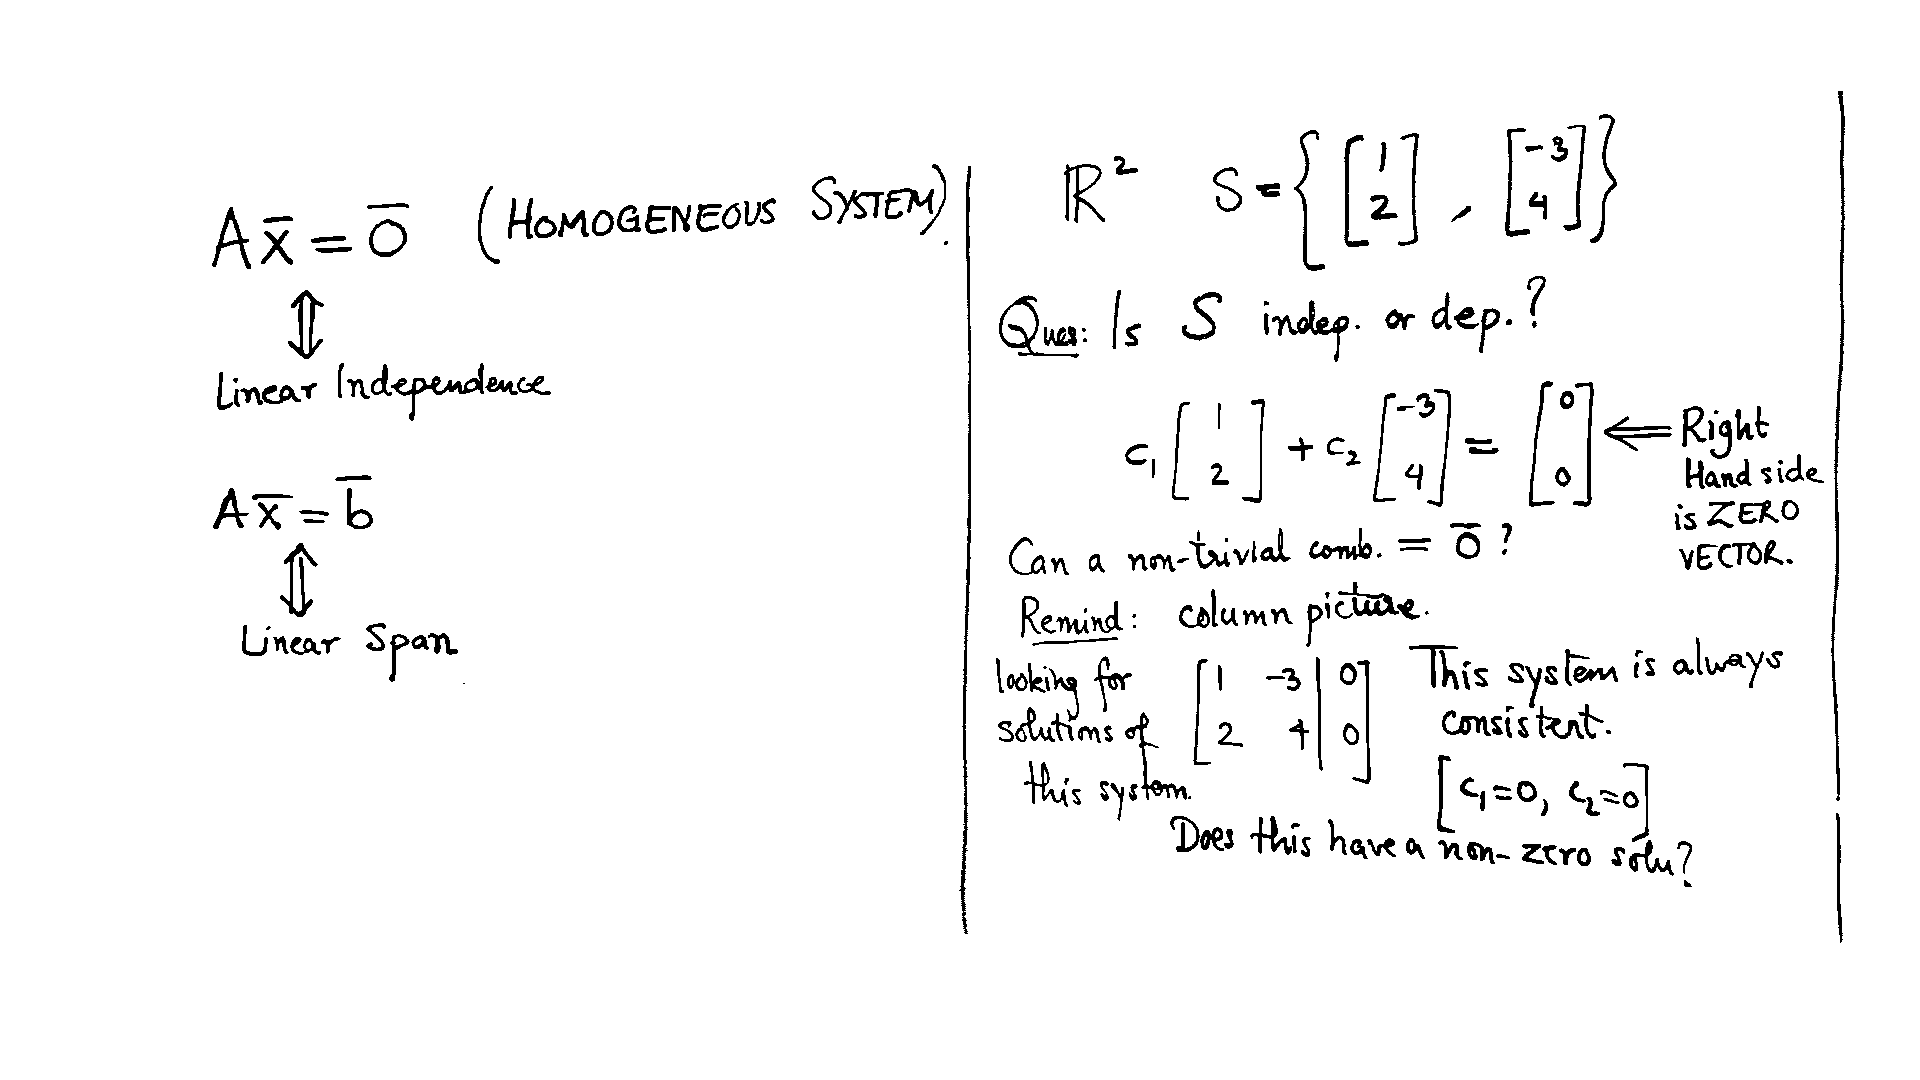 Ax̄ = 0̄ (HOMOGENEOUS SYSTEM).
⇕
Linear Independence
Ax̄ = b̄
⇕
Linear Span
ℝ² S = { [1 2], [-3 4] }
Ques: Is S indep. or dep.?
c₁ [1 2] + c₂ [-3 4] = [0 0] ⇐ Right
Hand side
is ZERO
VECTOR.
Can a non-trivial comb. = 0̄ ?
Remind: column picture.
looking for
solutions of
this system.
[1 -3 | 0
2 4 | 0]
This system is always
consistent.
[c₁=0, c₂=0]
Does this have a non-zero solu?